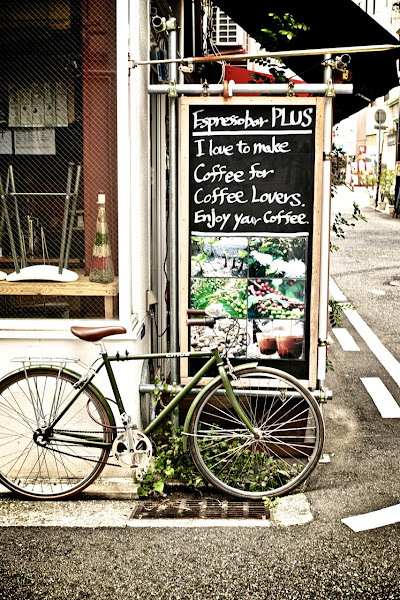 Espressobar PLUS
I love to make
Coffee for
Coffee Lovers.
Enjoy your Coffee.